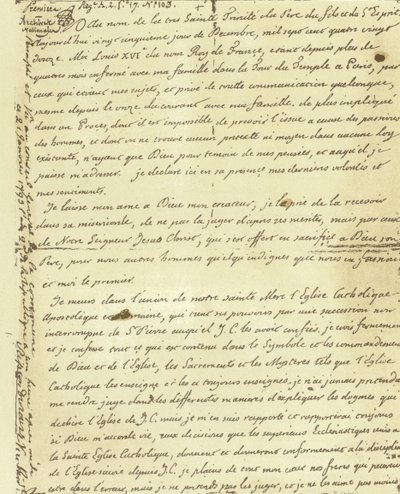 Au nom de la tres Sainte Trinité du Pere du fils et du St Esprit.
aujourd'hui vingt cinquieme jour de Decembre, mil sept cent quatre vingt
douze. Moi Louis XVIe du nom Roy de France, etant depuis plus de
quatres mois enfermé avec ma famille dans la Tour du Temple a Paris, par
ceux qui etoient mes sujets, et privé de toutte communication quelconque,
mesme depuis le onze du courant avec ma famille. de plus impliqué
dans un Procès, dont il est impossible de prevoir l'issue a cause des passions
des hommes, et dont on ne trouve aucun pretexte ni moyen dans aucune Loy
existante, n'ayant que Dieu pour temoin de mes pensées, et auquel je
puisse m'adresser. je declare ici en sa presence mes dernieres volontés et
mes sentiments.
Je laisse mon ame a Dieu mon createur, je le prie de la recevoir
dans sa misericorde, de ne pas la juger d'apres ses merites, mais par ceux
de Notre Seigneur Jesus Christ, qui s'est offert en sacrifice a Dieu son
Pere, pour nous autres hommes quelqu'indignes que nous en fussions
et moi le premier.
Je meurs dans l'union de notre sainte Mere l'Eglise Catholique
Apostolique et Romaine, qui tient ses pouvoirs par une succession non
interrompue de St Pierre auquel J.C. les avoit confiés, je crois fermement
et je confesse tout ce qui est contenu dans le Symbole et les commandements
de Dieu et de l'Eglise, les Sacrements et les Mysteres tels que l'Eglise
Catholique les enseigne et les a toujours enseignés, je n'ai jamais pretendu
me rendre juge dans les differentes manieres d'expliquer les dogmes qui
dechire l'Eglise de J.C. mais je m'en suis rapporté et rapporterai toujours
si Dieu m'accorde vie, aux decisions que les superieurs Ecclesiastiques unis a
la Sainte Eglise Catholique, donnent et donneront conformement a la discipline
de l'Eglise suivie depuis J.C. je plains de tout mon cœur nos freres qui peuvent
estre dans l'erreur, mais je ne pretends pas les juger, et je ne les aime pas moins